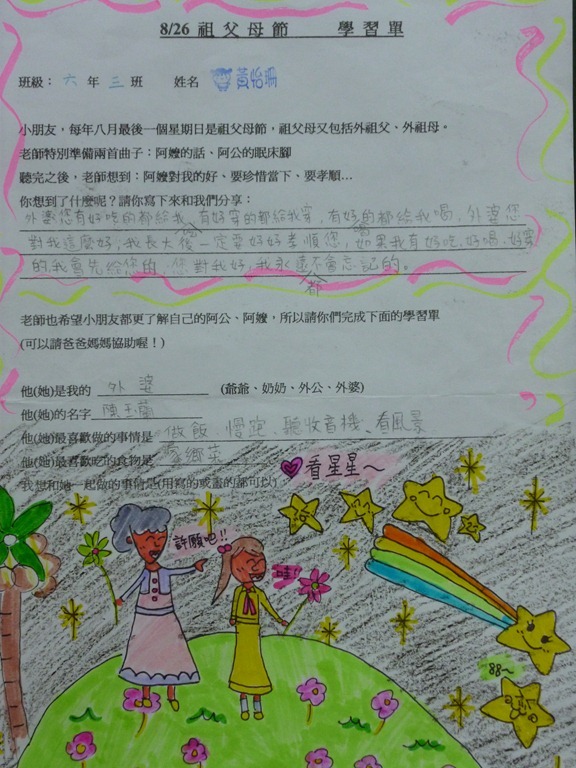 8/26 祖父母節 學習單
班級： 六 年 三 班 姓名 黃怡珊
小朋友，每年八月最後一個星期日是祖父母節，祖父母又包括外祖父、外祖母。
老師特別準備兩首曲子：阿嬤的話、阿公的眠床腳
聽完之後，老師想到：阿嬤對我的好、要珍惜當下、要孝順…
你想到了什麼呢？請你寫下來和我們分享：
外婆您有好吃的都給我，有好穿的都給我穿，有好的都給我喝，外婆您
對我這麼好，我長大後一定要好好孝順您，如果我有好吃，好喝，好穿
的，我會先給您的，您對我好，我永遠都不會忘記的。
老師也希望小朋友都更了解自己的阿公、阿嬤，所以請你們完成下面的學習單
(可以請爸爸媽媽協助喔！)
他(她)是我的 外婆 (爺爺、奶奶、外公、外婆)
他(她)的名字 陳玉蘭
他(她)最喜歡做的事情是 做飯、慢跑、聽收音機、看風景
他(她)最喜歡吃的食物是 家鄉菜
我想和她一起做的事情是(用寫的或畫的都可以) 看星星～
許願吧!!
哇!
88～